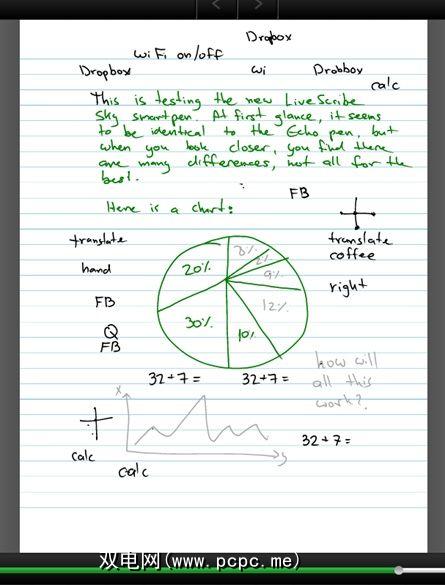 Dropbox
WiFi on/off
Dropbox Wi Drobbox
calc
This is testing the new LiveScribe
Sky smartpen. At first glance, it seems
to be identical to the Echo pen, but
when you look closer, you find there
are many differences, not all for the
best.
FB
Here is a chart:
translate
translate
coffee
hand
right
FB
Q
FB
20%
8%
2%
9%
12%
30%
10%
32+7= 32+7=
how will
all this
work?
x
y
32+7=
calc
calc
双电网(www.pcpc.me)